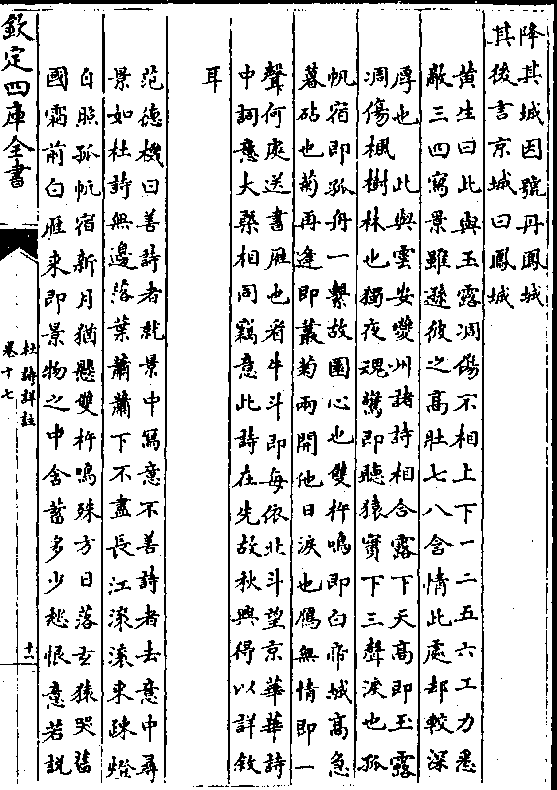 降其城因號丹鳳城
其後言京城曰鳳城
黄生曰此與玉露凋傷不相上下一二五六工力悉
敵三四寫景雖遜彼之高壯七八含情此處却較深
厚也　此與雲安夔州諸詩相合露下天高即玉露
凋傷楓樹林也獨夜魂驚即聽猿實下三聲淚也孤
帆宿即孤舟一繫故園心也雙杵鳴即白帝城高急
暮砧也菊再逢即叢菊兩開他日淚也鴈無情即一
聲何處送書雁也看牛斗即每依北斗望京華華詩
中詞意大槩相同竊意此詩在先故秋興得以詳敘
耳
范德機曰善詩者就景中寫意不善詩者去意中尋
景如杜詩無邊落葉蕭蕭下不盡長江滾滾來疎燈
自照孤帆宿新月猶懸雙杵鳴殊方日落玄猿哭舊
國霜前白雁來即景物之中含蓄多少愁恨意若説
欽定四庫全書
杜詩詳註
卷十七
十一